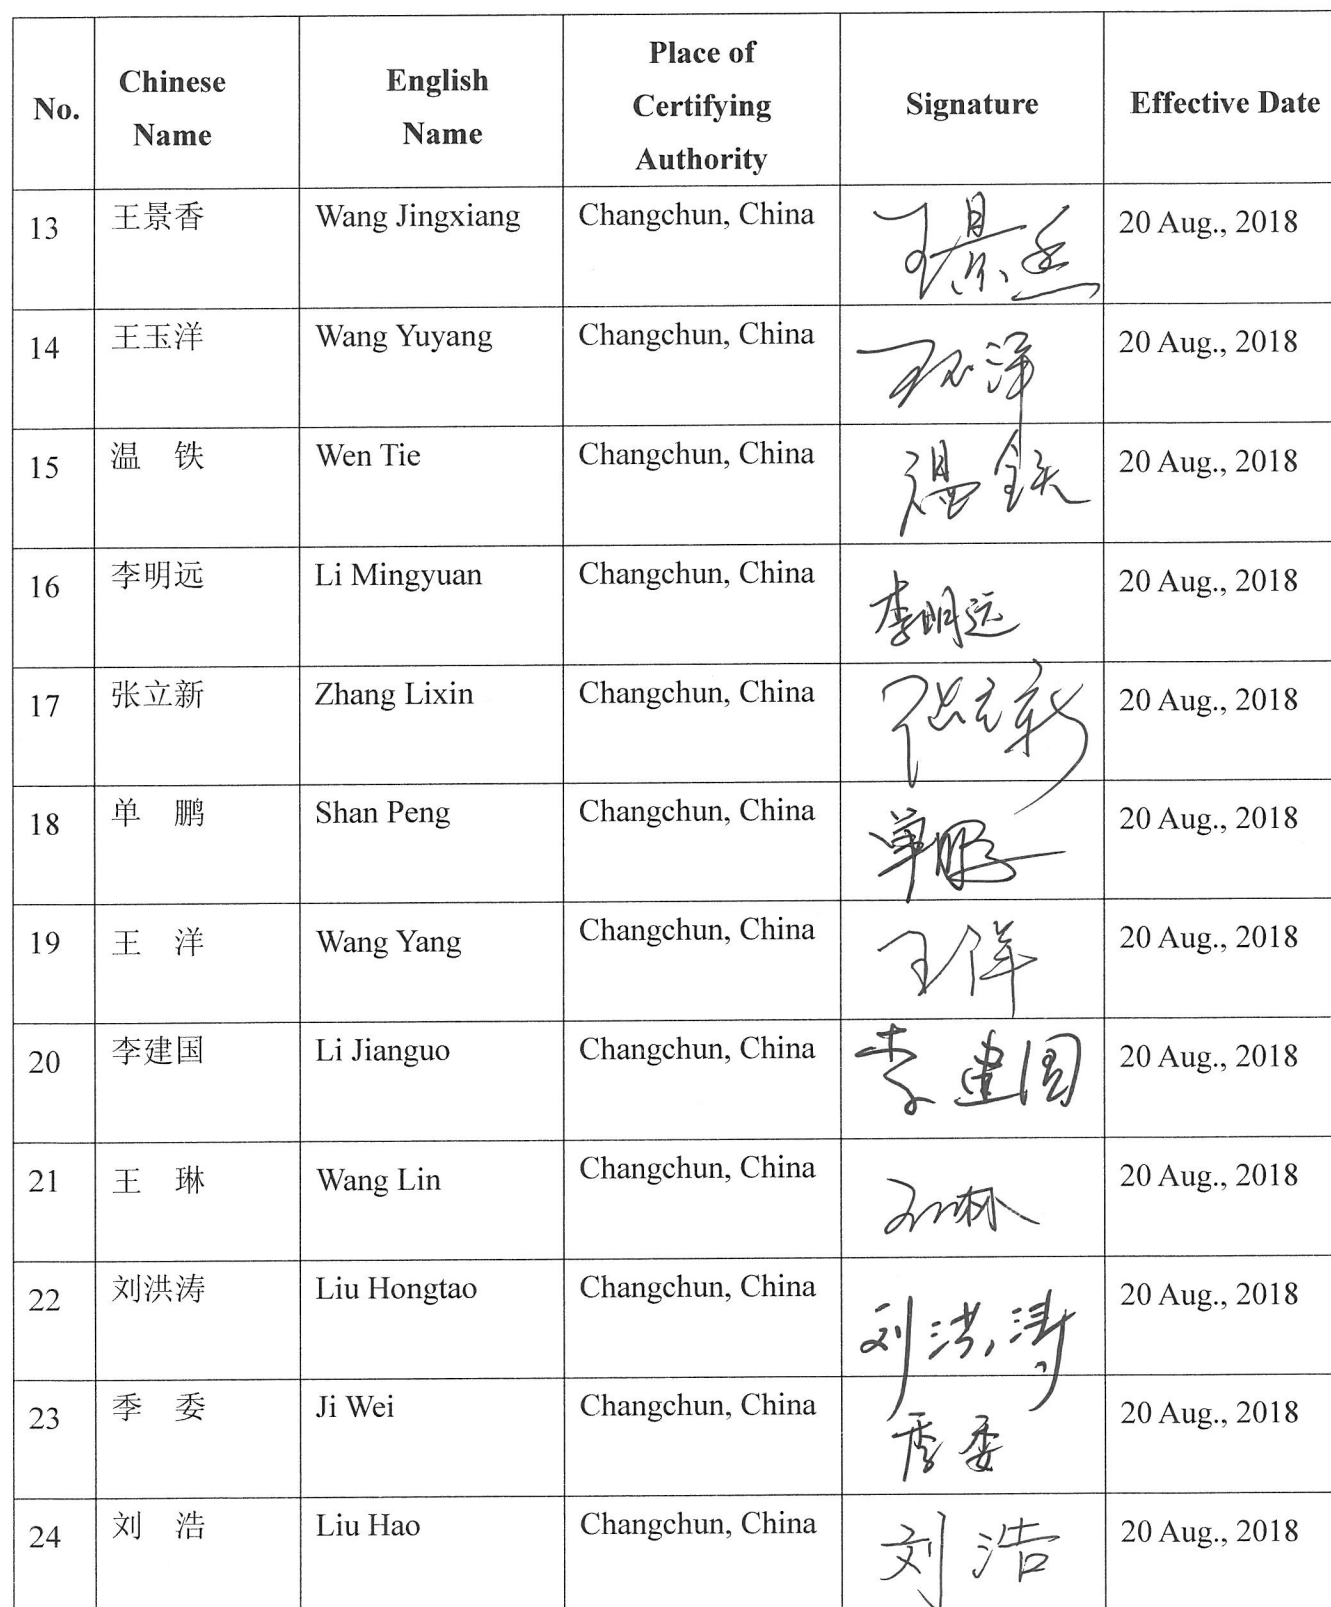 No.
Chinese
Name
English
Name
Place of
Certifying
Authority
Signature
Effective Date
13 王景香 Wang Jingxiang Changchun, China 王景香 20 Aug., 2018
14 王玉洋 Wang Yuyang Changchun, China 王玉洋 20 Aug., 2018
15 温 铁 Wen Tie Changchun, China 温铁 20 Aug., 2018
16 李明远 Li Mingyuan Changchun, China 李明远 20 Aug., 2018
17 张立新 Zhang Lixin Changchun, China 张立新 20 Aug., 2018
18 单 鹏 Shan Peng Changchun, China 单鹏 20 Aug., 2018
19 王 洋 Wang Yang Changchun, China 王洋 20 Aug., 2018
20 李建国 Li Jianguo Changchun, China 李建国 20 Aug., 2018
21 王 琳 Wang Lin Changchun, China 王琳 20 Aug., 2018
22 刘洪涛 Liu Hongtao Changchun, China 刘洪涛 20 Aug., 2018
23 季 委 Ji Wei Changchun, China 季委 20 Aug., 2018
24 刘 浩 Liu Hao Changchun, China 刘浩 20 Aug., 2018